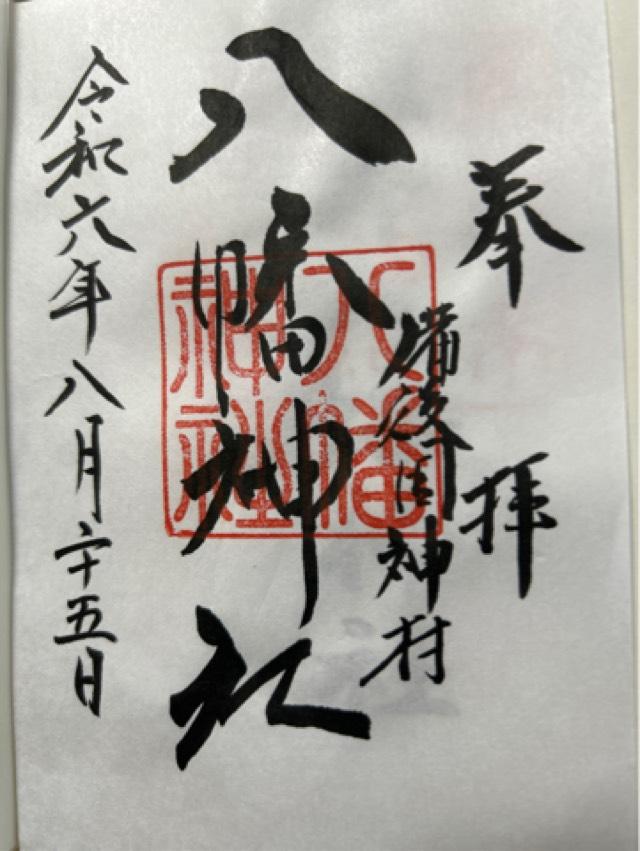 奉拝
備後国神村
八幡神社
八幡神社
令和六年八月二十五日